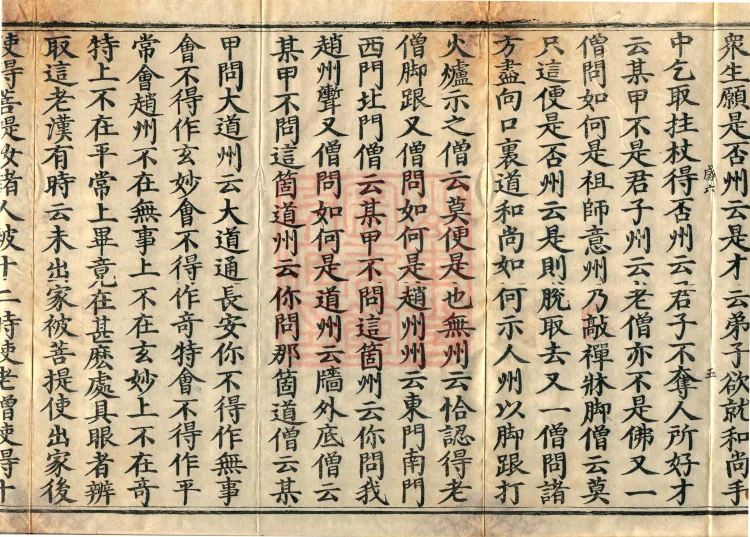 衆生願是否州云是才云弟子欲就和尚手
中乞取拄杖得否州云君子不奪人所好才
云某甲不是君子州云老僧亦不是佛又一
僧問如何是祖師意州乃敲禪牀脚僧云莫
只這便是否州云是則脫取去又一僧問諸
方盡向口裏道和尚如何示人州以脚跟打
火爐示之僧云莫便是也無州云恰認得老
僧脚跟又僧問如何是趙州州云東門南門
西門北門僧云某甲不問這箇州云你問我
趙州聻又僧問如何是道州云牆外底僧云
某甲不問這箇道州云你問那箇道僧云某
甲問大道州云大道通長安你不得作無事
會不得作玄妙會不得作奇特會不得作平
常會趙州不在無事上不在玄妙上不在奇
特上不在平常上畢竟在甚麽處具眼者辨
取這老漢有時云未出家被菩提使出家後
使得菩提汝諸人被十二時使老僧使得十
五